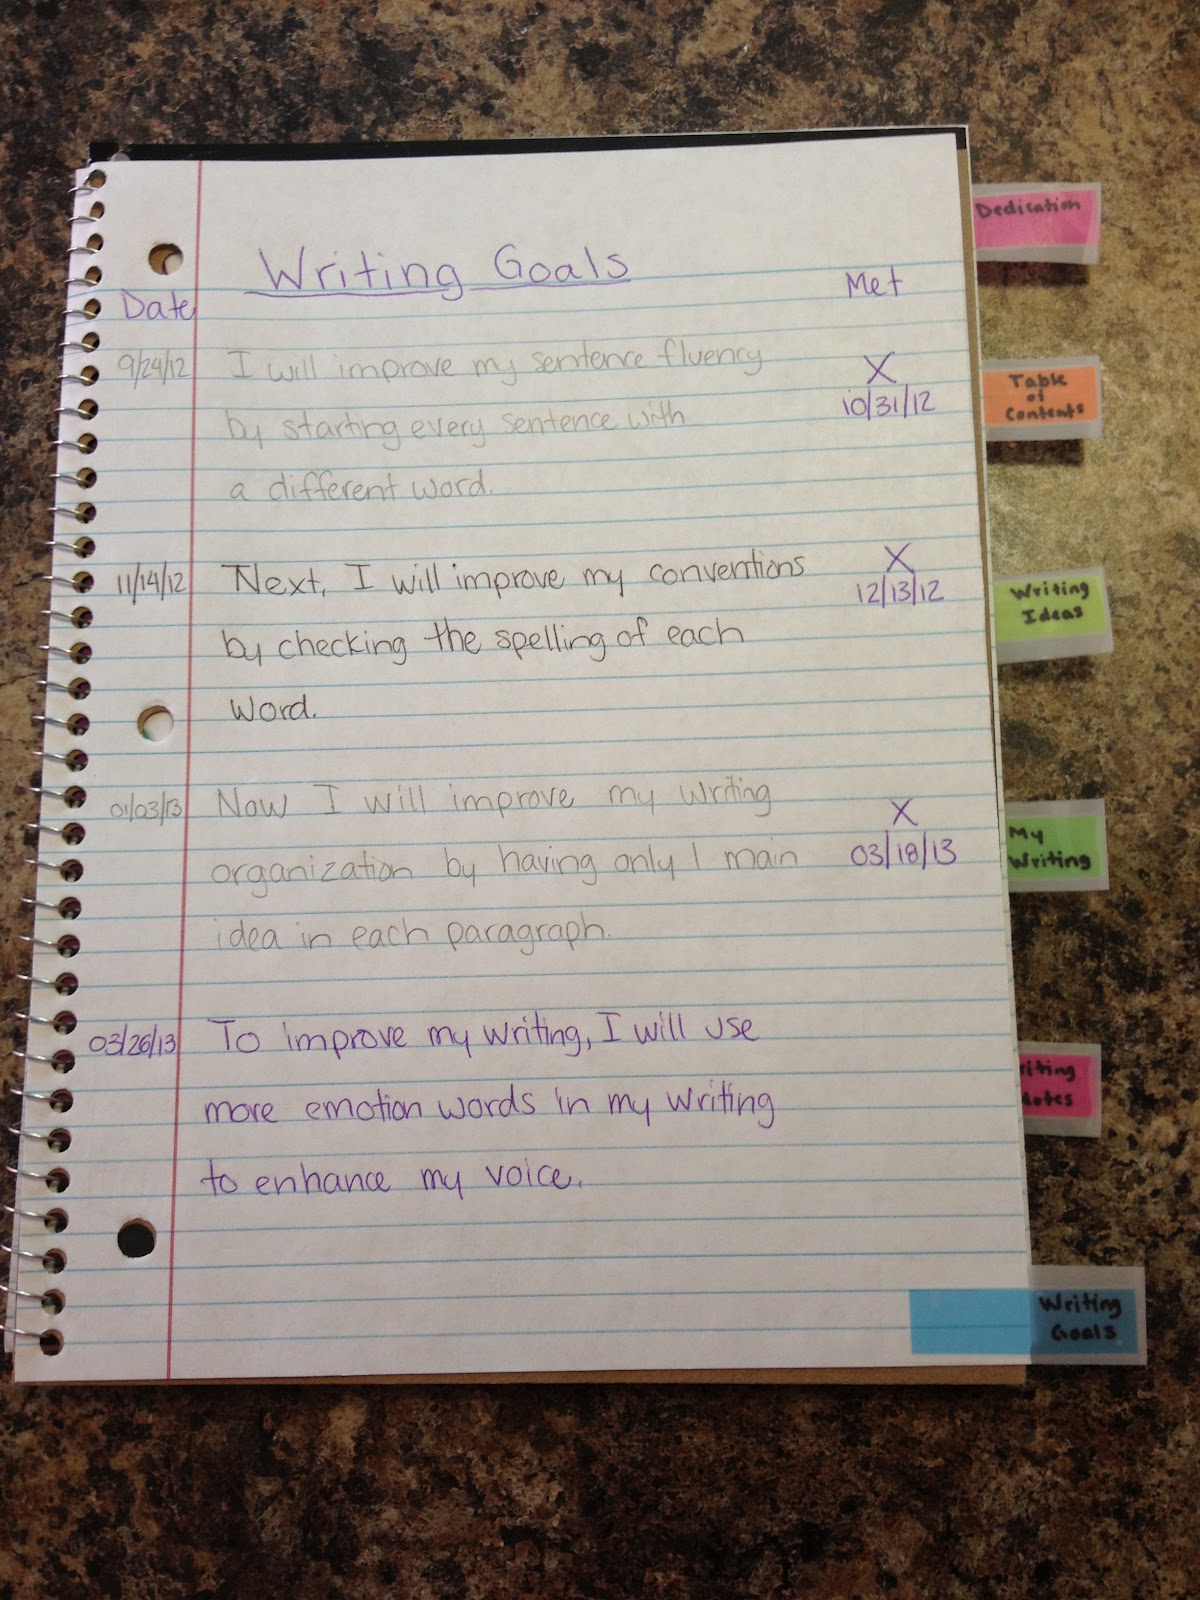 Writing Goals
Date
Met
9/24/12 I will improve my sentence fluency
X
10/31/12
by starting every sentence with
a different word.
11/14/12 Next, I will improve my conventions
X
12/13/12
by checking the spelling of each
word.
01/03/13 Now I will improve my writing
X
organization by having only 1 main
03/18/13
idea in each paragraph.
03/26/13 To improve my writing, I will use
more emotion words in my writing
to enhance my voice.
Dedication
Table
of
Contents
Writing
Ideas
My
Writing
riting
Notes
Writing
Goals